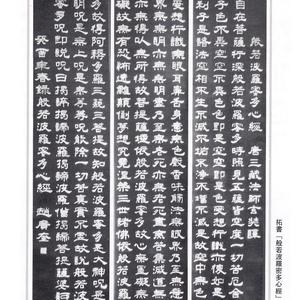 拓書「般若波羅密多心經」
般若波羅蜜多心經 唐三藏法師玄奘譯
自在菩薩行深般若波羅蜜多時照見五蘊皆空度一切苦厄
子色不異空空不異色色即是空空即是色受想行識亦復如是舍
利子是諸法空相不生不滅不垢不淨不增不減是故空中無色無
受想行識無眼耳鼻舌身意無色聲香味觸法無眼界乃至無意
界無無明亦無無明盡乃至無老死亦無老死盡無苦集滅道
無智亦無得以無所得故菩提薩埵依般若波羅蜜多故心無罣礙無
罣礙故無有恐怖遠離顛倒夢想究竟涅槃三世諸佛依般若波羅
蜜多故得阿耨多羅三藐三菩提故知般若波羅蜜多是大神呪是
大明呪是無上呪是無等等呪能除一切苦真實不虛故說般若波羅
蜜多呪即說呪曰揭諦揭諦波羅揭諦波羅僧揭諦菩提薩婆訶
癸酉年春錄般若波羅蜜多心經